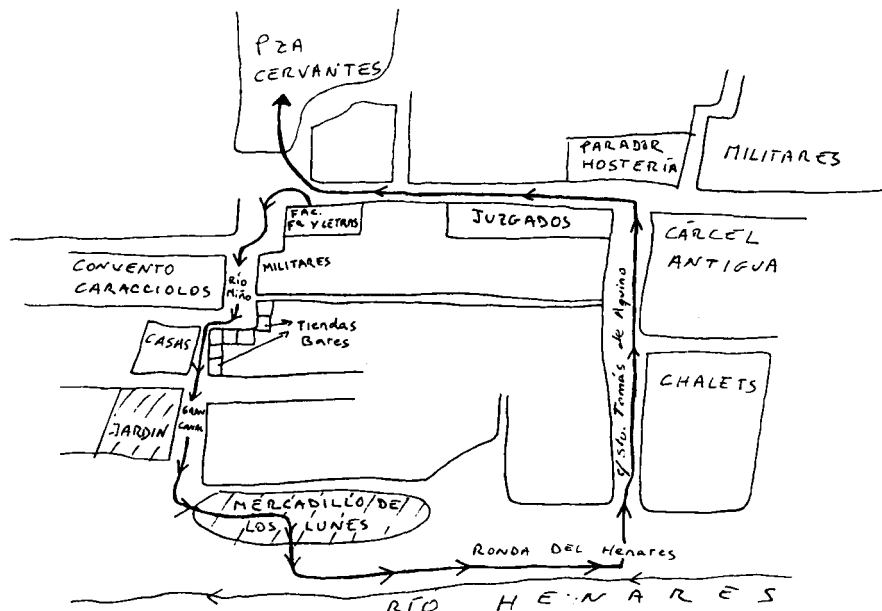 PZA
CERVANTES
PARADOR
HOSTERÍA
MILITARES
FAC.
Fª Y LETRAS
JUZGADOS
CÁRCEL
ANTIGUA
CONVENTO
CARACCIOLOS
RÍO
MIÑO
MILITARES
Tiendas
Bares
CASAS
c/ Sto. Tomás de Aquino
CHALETS
JARDIN
GRAN
CANAL
MERCADILLO DE
LOS LUNES
RONDA DEL Henares
RÍO HENARES